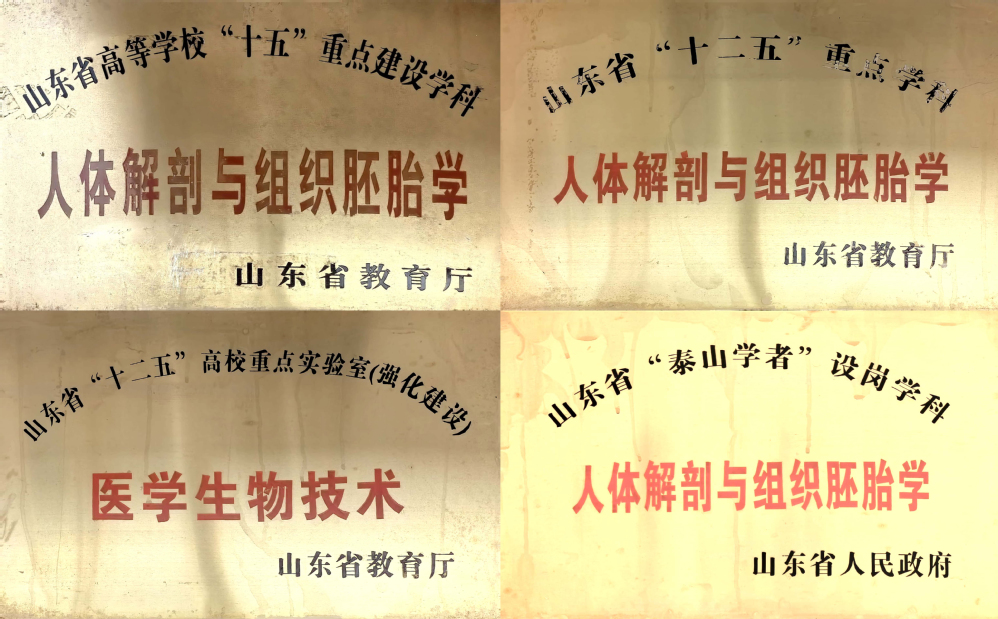 山东省高等学校“十五”重点建设学科
人体解剖与组织胚胎学
山东省教育厅
山东省“十二五”重点学科
人体解剖与组织胚胎学
山东省教育厅
山东省“十二五”高校重点实验室(强化建设)
医学生物技术
山东省教育厅
山东省“泰山学者”设岗学科
人体解剖与组织胚胎学
山东省人民政府